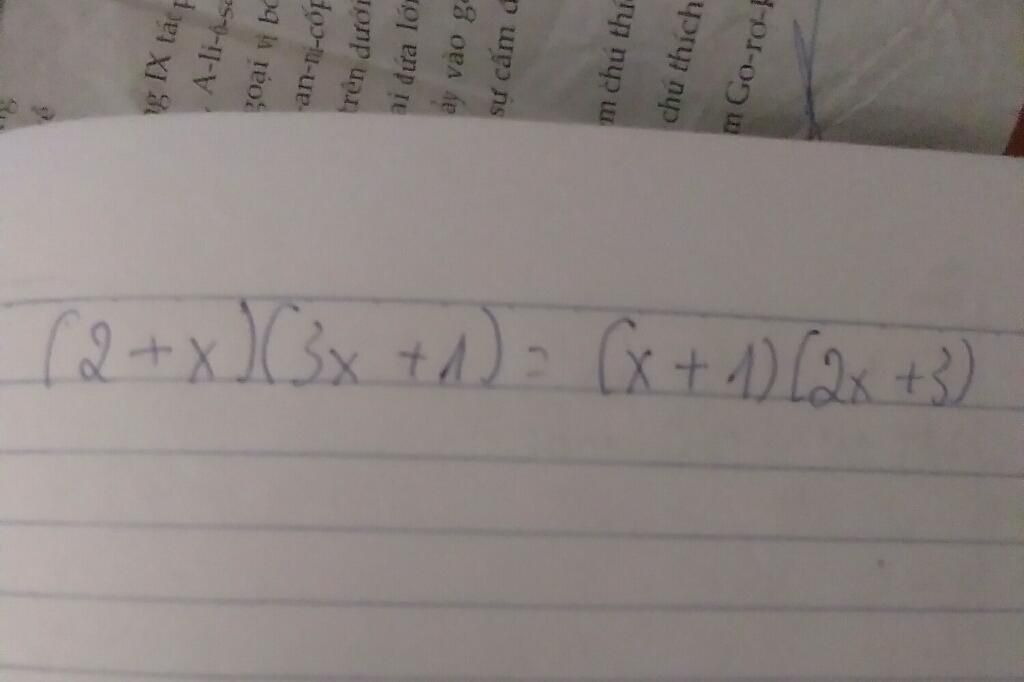 ng IX tác p
A-li-ô-sa
goại vị bố
an-nhi-cốp
trên dưới
ai đứa lớn
ẩy vào gọ
sự cấm đ
m chú thíc
chú thích
m Go-rơ-k
(2 + x)(3x + 1) = (x + 1)(2x + 3)